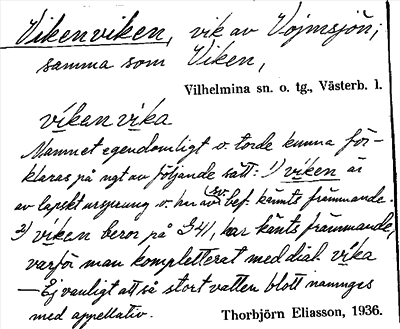 Vikenviken, vik av Vojmsjön;
samma som Viken,
Vilhelmina sn. o. tg., Västerb. l.
víken vika
Namnet egendomligt o. torde kunna för-
klaras på ngt av följande sätt: 1) viken är
av lapskt ursprung o. har av sv. bef. känts främmande.
2) viken beror på G41, har känts främmande,
varför man kompletterat med dial. vika
— Ej vanligt att så stort vatten blott namnges
med appellativ.
Thorbjörn Eliasson, 1936.